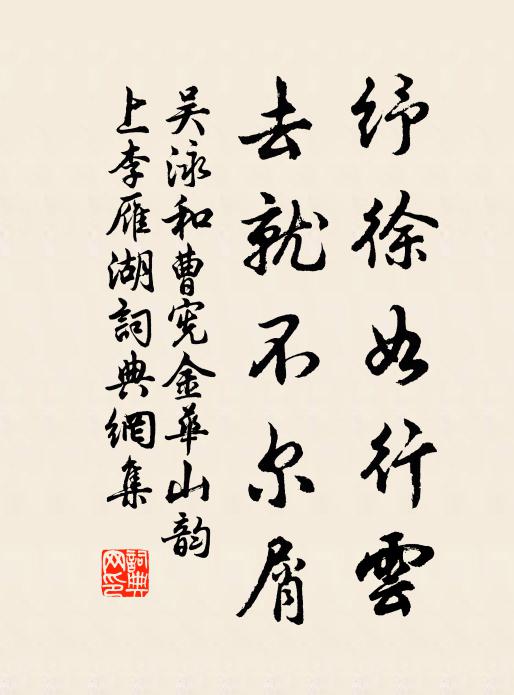 纾徐如行雲
去就不尔屑
吴泳和曹宪金華山韵
上李雁湖詞典網集
詞典网印